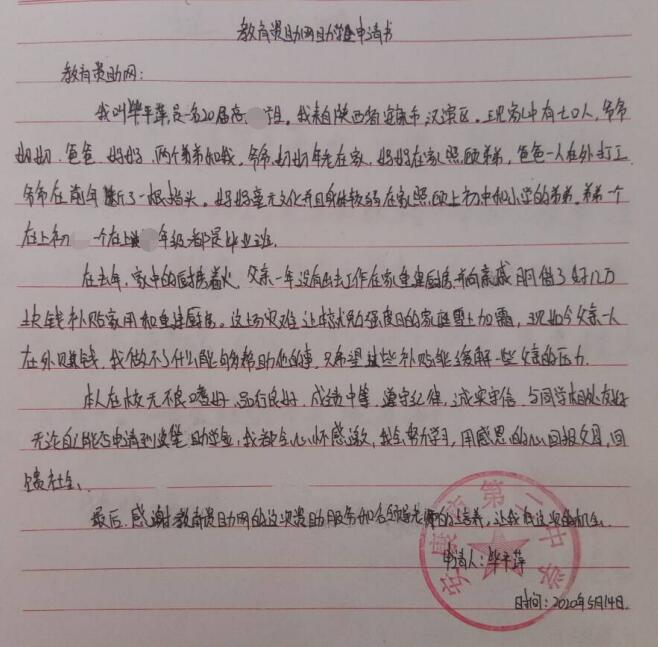 教育资助网助学金申请书
教育资助网:
我叫毕平萍,是一名20届高 生。我来自陕西省安康市汉滨区。现家中有七口人,爷爷
奶奶、爸爸、妈妈、两个弟弟和我。爷爷、奶奶年老在家,妈妈在家照顾弟弟,爸爸一人在外打工
爷爷在前年断了一根指头。妈妈毫无文化并且身体较弱在家照顾上初中和小学的弟弟。弟弟一个
在上初 一个在上 年级都是毕业班.
在去年,家中的厨房着火,父亲一年没有出去工作在家重建厨房,并向亲戚朋友借了好几万
块钱补贴家用和重建厨房。这场灾难让本就勉强度日的家庭雪上加霜,现如今父亲一人
在外赚钱,我做不了什么能够帮助他的事,只希望这些补贴能缓解一些父亲的压力.
本人在校无不良嗜好,品行良好,成绩中等,遵守纪律,诚实守信,与同学相处友好
无论自己能否申请到这笔助学金,我都会心怀感激,我会努力学习,用感恩的心回报父母,回
馈社会、
最后,感谢教育资助网的这次资助服务和各领导老师的培养,让我有这次的机会.
申请人:毕平萍
时间:2020年5月14日.
安康市第二中学